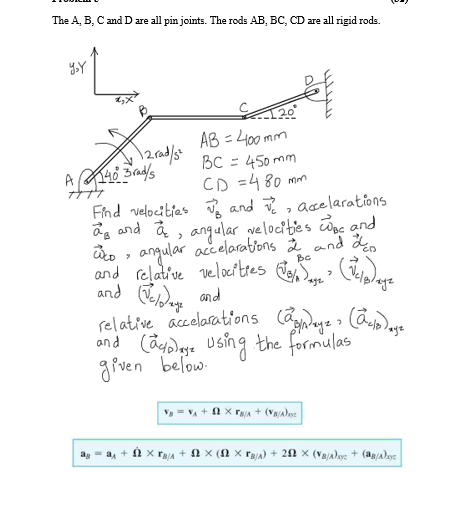 The A, B, C and D are all pin joints. The rods AB, BC, CD are all rigid rods.
y,Y
x,X
B
C
D
20°
A
40°
3 rad/s
12 rad/s²
AB = 400 mm
BC = 450 mm
CD = 480 mm
Find velocities v⃗_B and v⃗_C , accelarations
a⃗_B and a⃗_C , angular velocities ω⃗_BC and
ω⃗_CD , angular accelarations α⃗_BC and α⃗_CD
and relative velocities (v⃗_B/A)_xyz , (v⃗_C/B)_xyz
and (v⃗_C/D)_xyz and
relative accelarations (a⃗_B/A)_xyz , (a⃗_C/B)_xyz
and (a⃗_C/D)_xyz using the formulas
given below.
v_B = v_A + Ω × r_B/A + (v_B/A)_xyz
a_B = a_A + Ω̇ × r_B/A + Ω × (Ω × r_B/A) + 2Ω × (v_B/A)_xyz + (a_B/A)_xyz